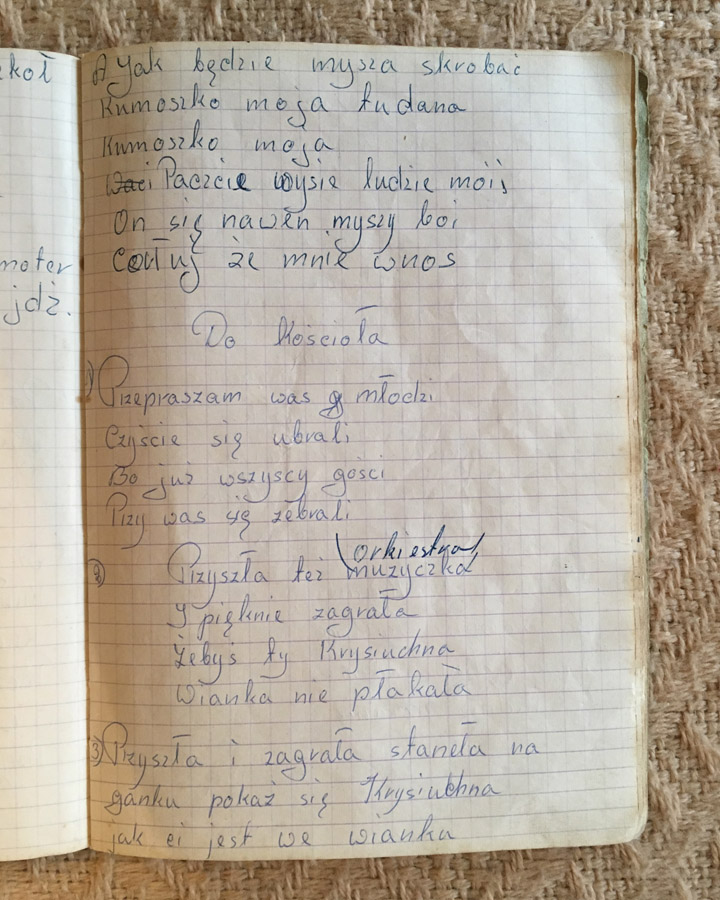 ekoł
moter
jdź.
A Jak będzie mysza skrobać
Kumoszko moja łudana
Kumoszko moja
Paczcie wysie ludzie moii
On się nawen myszy boi
że mnie wnos
Do Kościoła
1) Przepraszam was młodzi
Czyście się ubrali
Bo już wszyscy gości
Przy was się zebrali
orkiestra
2) Przyszła też muzyczka
I pięknie zagrała
Żebyś ty Krysiuchna
Wianka nie płakała
3) Przyszła i zagrała staneła na
ganku pokaż się Krysiuchna
jak ci jest we wianku